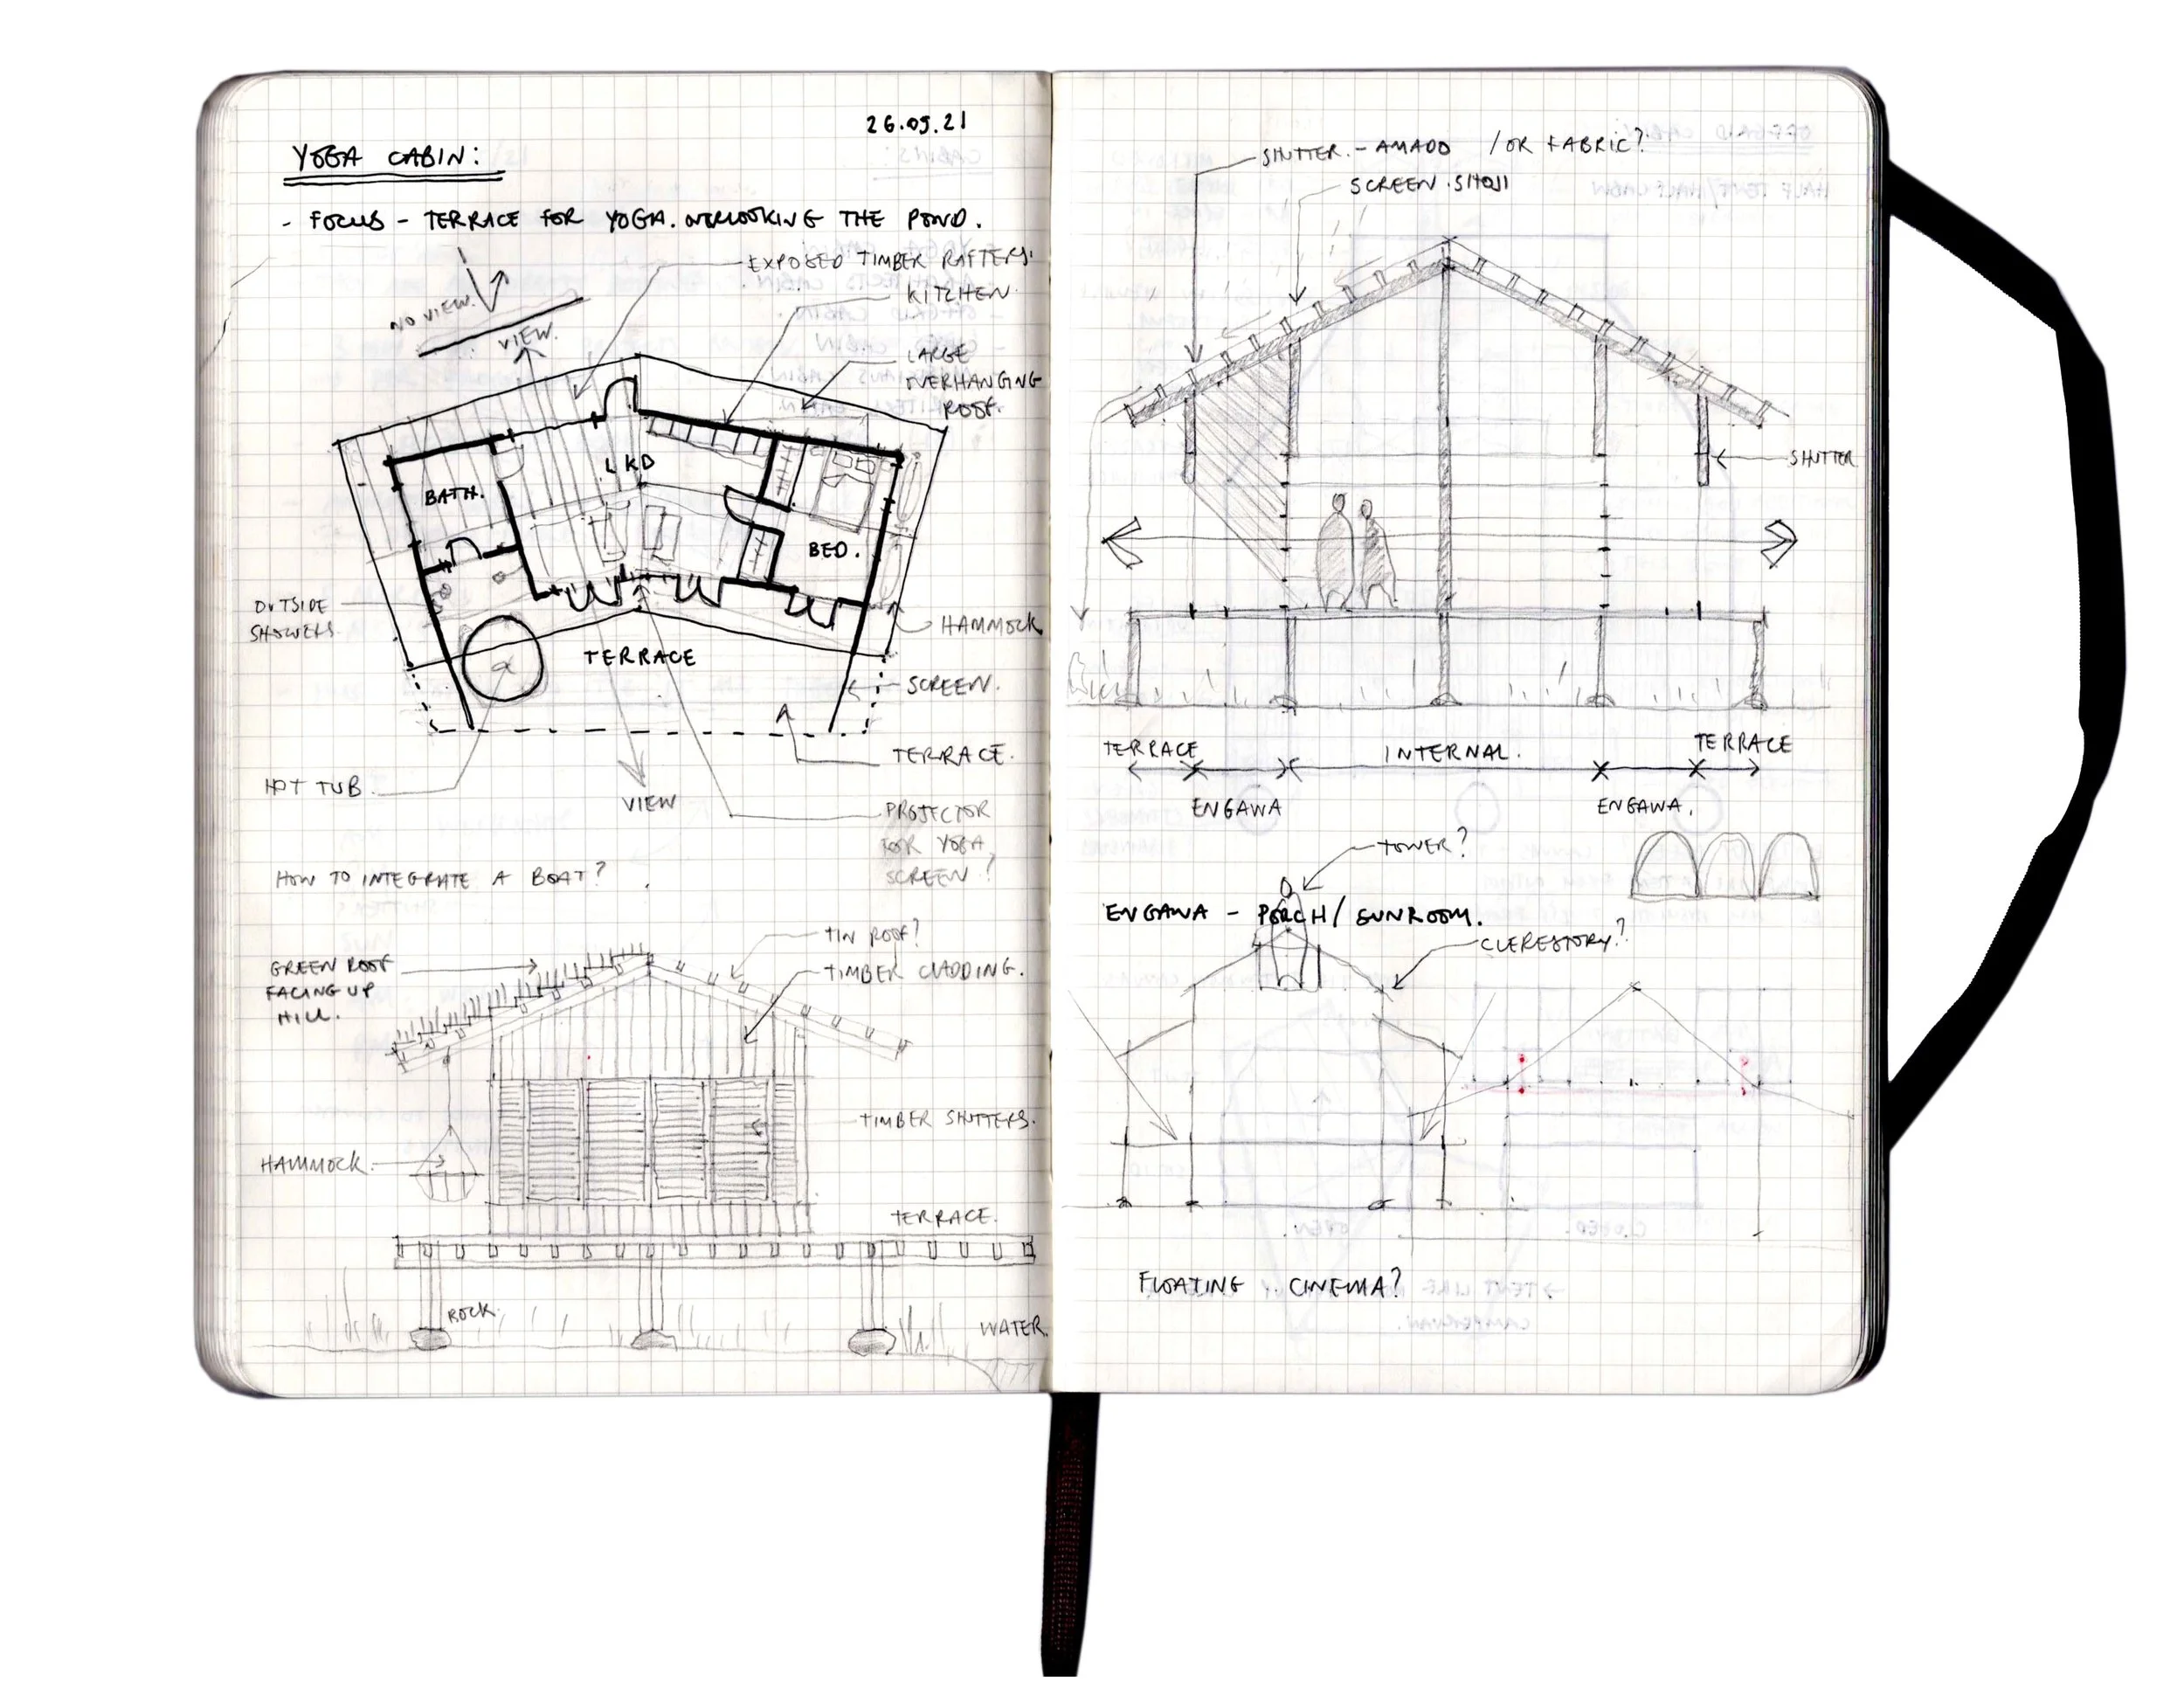 26.05.21
YOGA CABIN:
- FOCUS - TERRACE FOR YOGA. OVERLOOKING THE POND.
EXPOSED TIMBER RAFTERS.
KITCHEN.
NO VIEW.
VIEW.
LARGE
OVERHANGING
ROOF.
LKD
BATH.
BED.
OUTSIDE
SHOWERS.
HAMMOCK
TERRACE
SCREEN.
TERRACE.
HOT TUB.
VIEW
PROJECTOR
FOR YOGA
SCREEN?
HOW TO INTEGRATE A BOAT?
TIN ROOF?
GREEN ROOF
FACING UP
HILL.
TIMBER CLADDING.
TIMBER SHUTTERS.
HAMMOCK.
TERRACE.
ROCK.
WATER.
SHUTTER. - AMADO / OR FABRIC?
SCREEN. SHOJI
SHUTTER
TERRACE
INTERNAL.
TERRACE
ENGAWA
ENGAWA.
TOWER?
ENGAWA - PORCH / SUNROOM.
CLERESTORY?
FLOATING CINEMA?